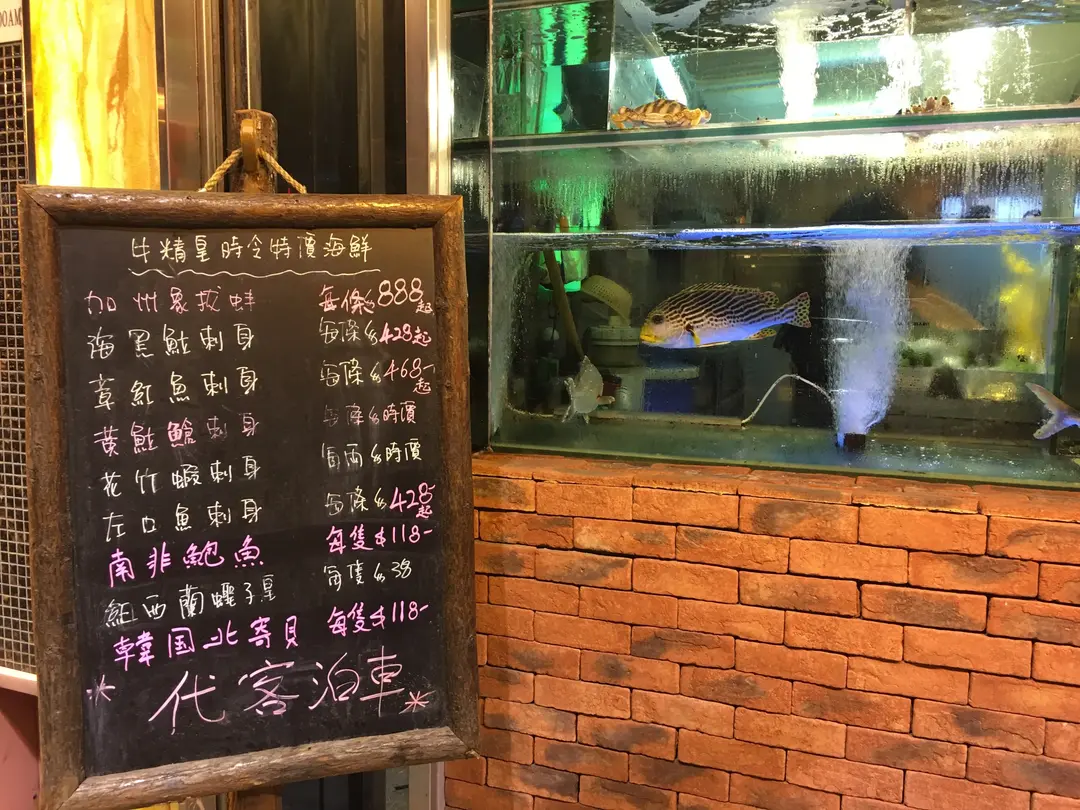 00AM
牛精皇時令特價海鮮
加州象拔蚌 每條$888起
海黑鮏刺身 每條$428起
章魟魚刺身 每條$468-起
黃鮏鱠刺身 每條$時價
花竹蝦刺身 每両$時價
左口魚刺身 每條$428-起
南非鮑魚 每隻$118-
紐西蘭蠔子皇 每隻$38
韓国北寄貝 每隻$118-
*代客泊車*